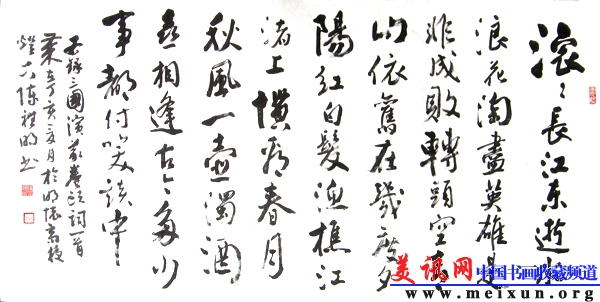 滚〻長江东逝水
浪花淘盡英雄是
非成敗轉頭空青
山依舊在幾度夕
陽紅白髮漁樵江
渚上慣看春月
秋風一壺濁酒
喜相逢古今多少
事都付笑談中
錄三國演義卷頭詞一首
丁亥夏月於明德高校
燈下陳禮明书
美讯网 中国书画收藏频道
www.meixun.org